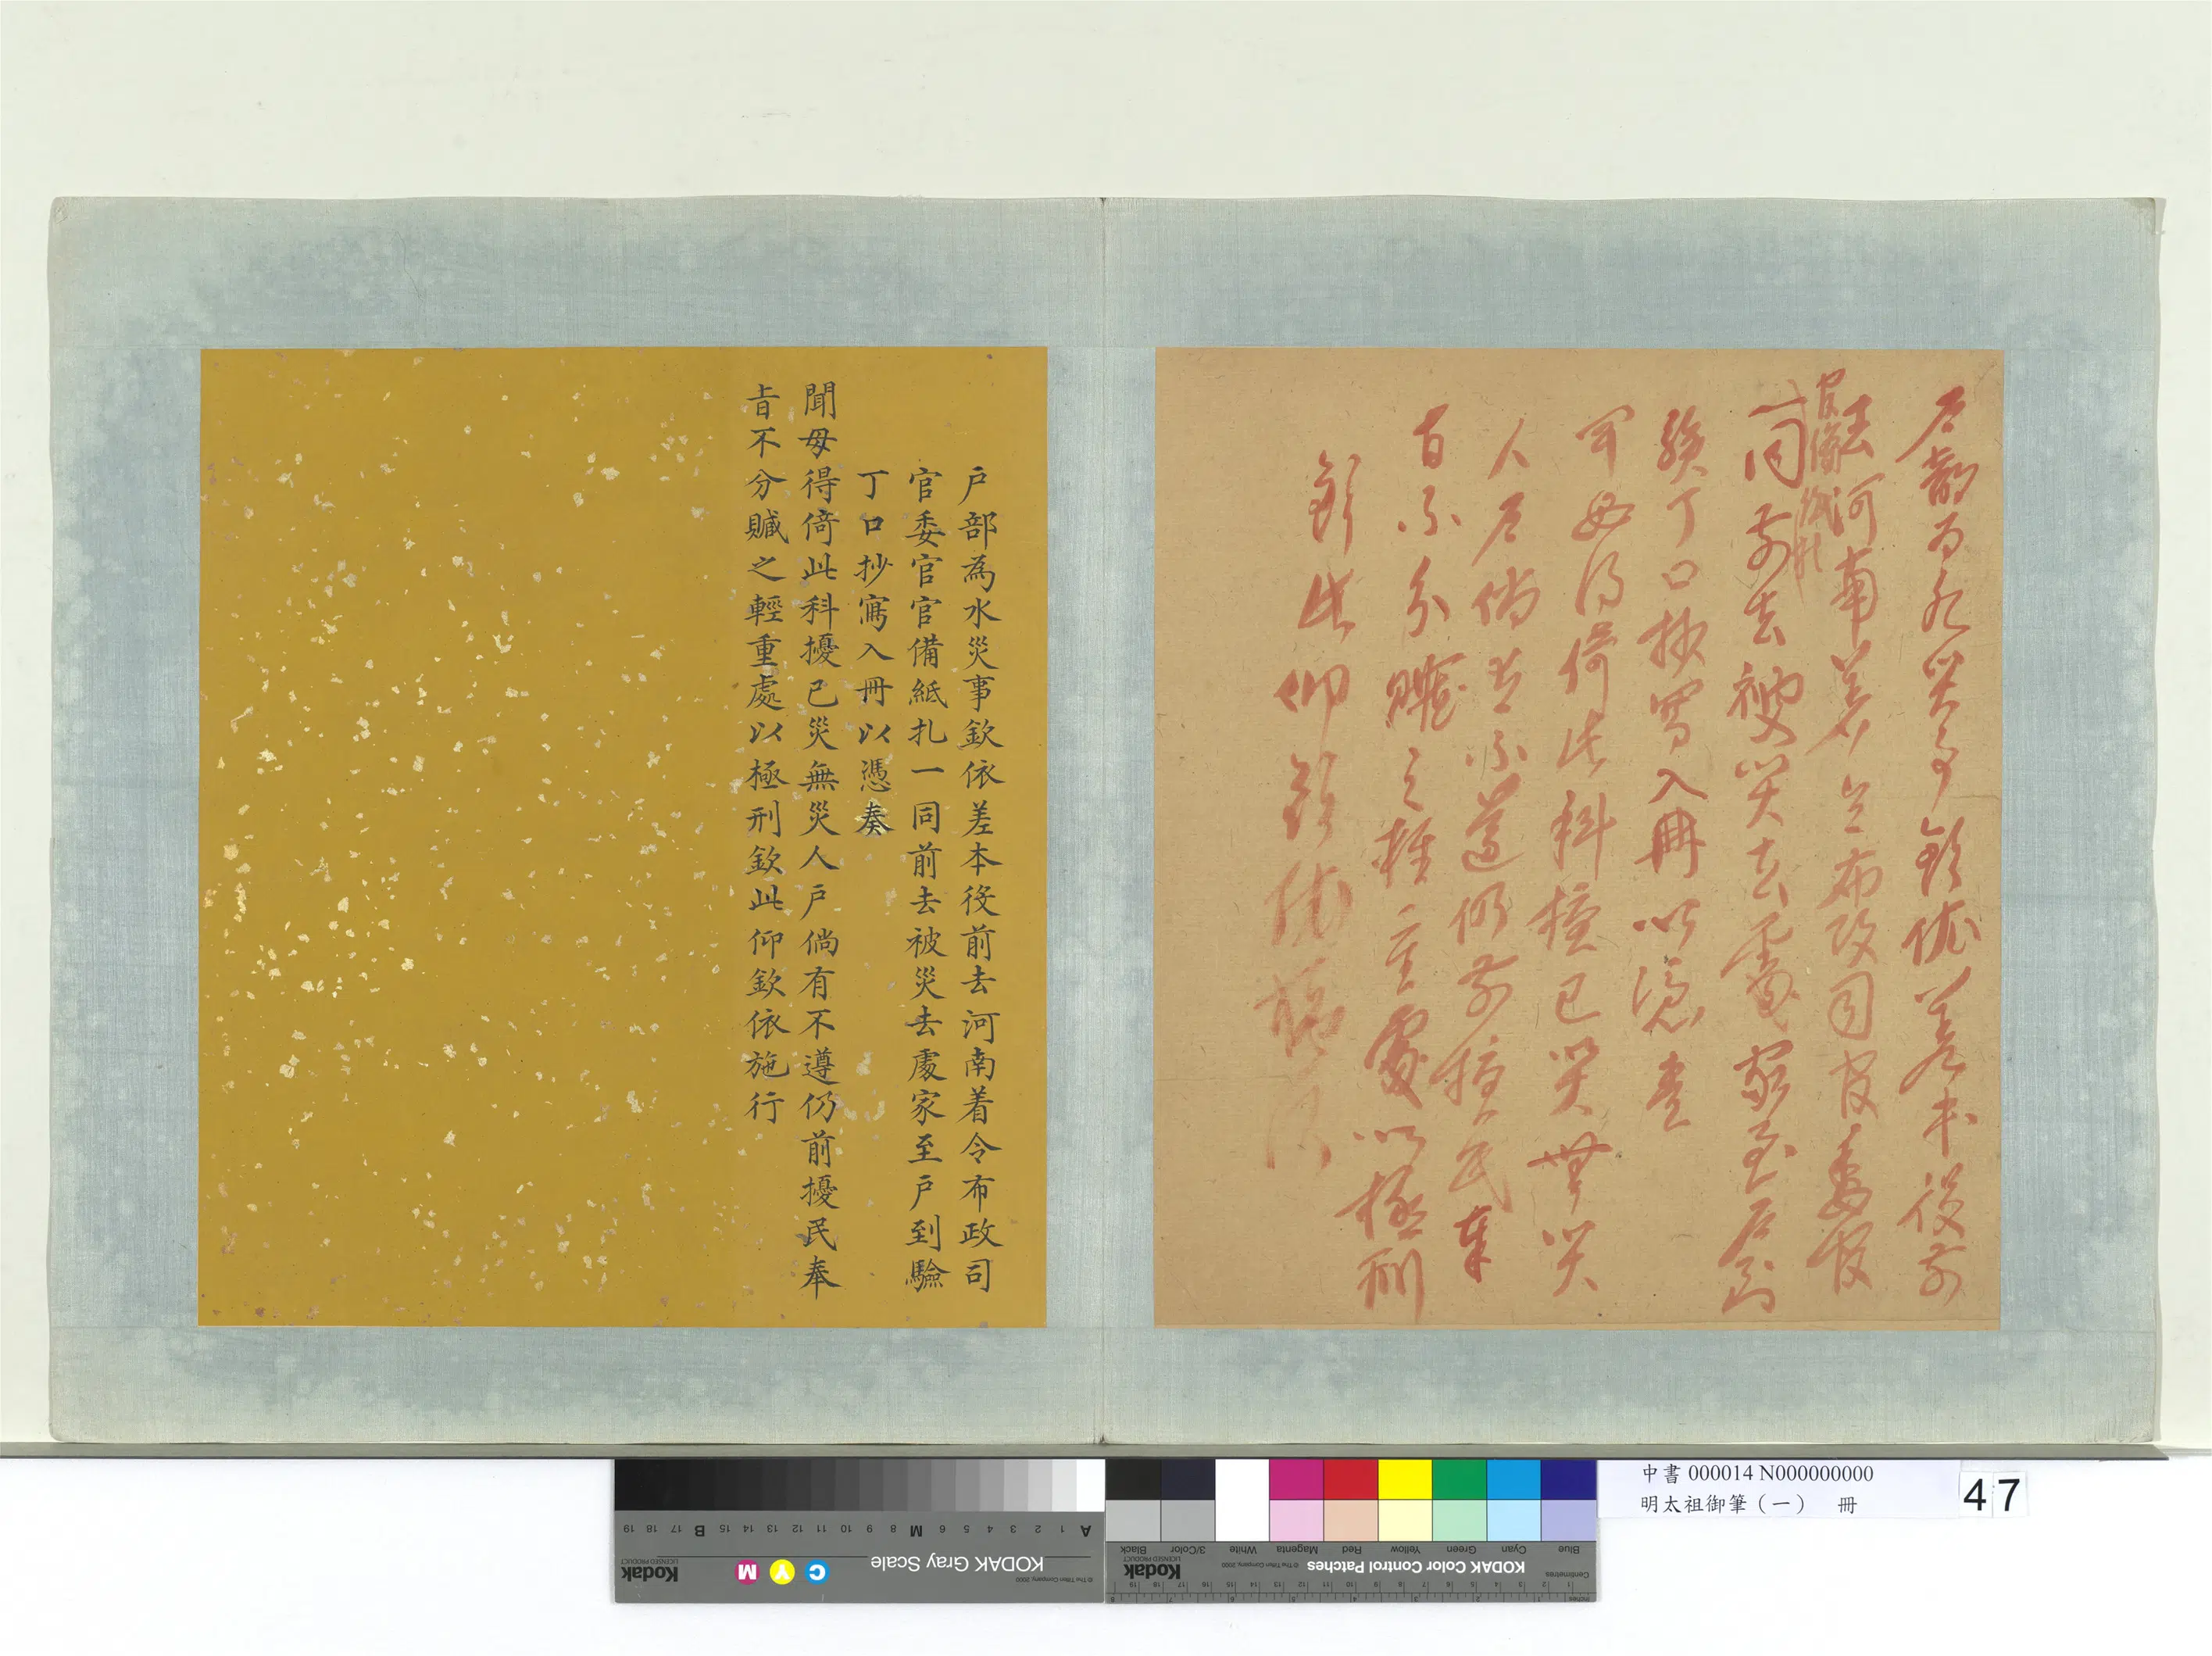 户部為水災事欽依差本役前
去河南着令布政司官委官
官備紙扎
一同前去被災去處家至户到
驗丁口抄寫入冊以憑奏
聞毋得倚此科擾已災無災
人户倘有不遵仍前擾民奉
旨不分贓之輕重處以極刑
欽此仰欽依施行
户部為水災事欽依差本役前去河南着令布政司
官委官官備紙扎一同前去被災去處家至户到驗
丁口抄寫入冊以憑奏
聞毋得倚此科擾已災無災人户倘有不遵仍前擾民奉
旨不分贓之輕重處以極刑欽此仰欽依施行
中書000014 N000000000
明太祖御筆（一） 冊
47
KODAK Gray Scale
A 1 2 3 4 5 6 M 8 9 10 11 12 13 14 15 B 17 18 19
C Y M
Kodak
LICENSED PRODUCT
© The Tiffen Company, 2000
KODAK Color Control Patches
Blue Cyan Green Yellow Red Magenta White 3/Color Black
Kodak
LICENSED PRODUCT
© The Tiffen Company, 2000
Centimetres
Inches